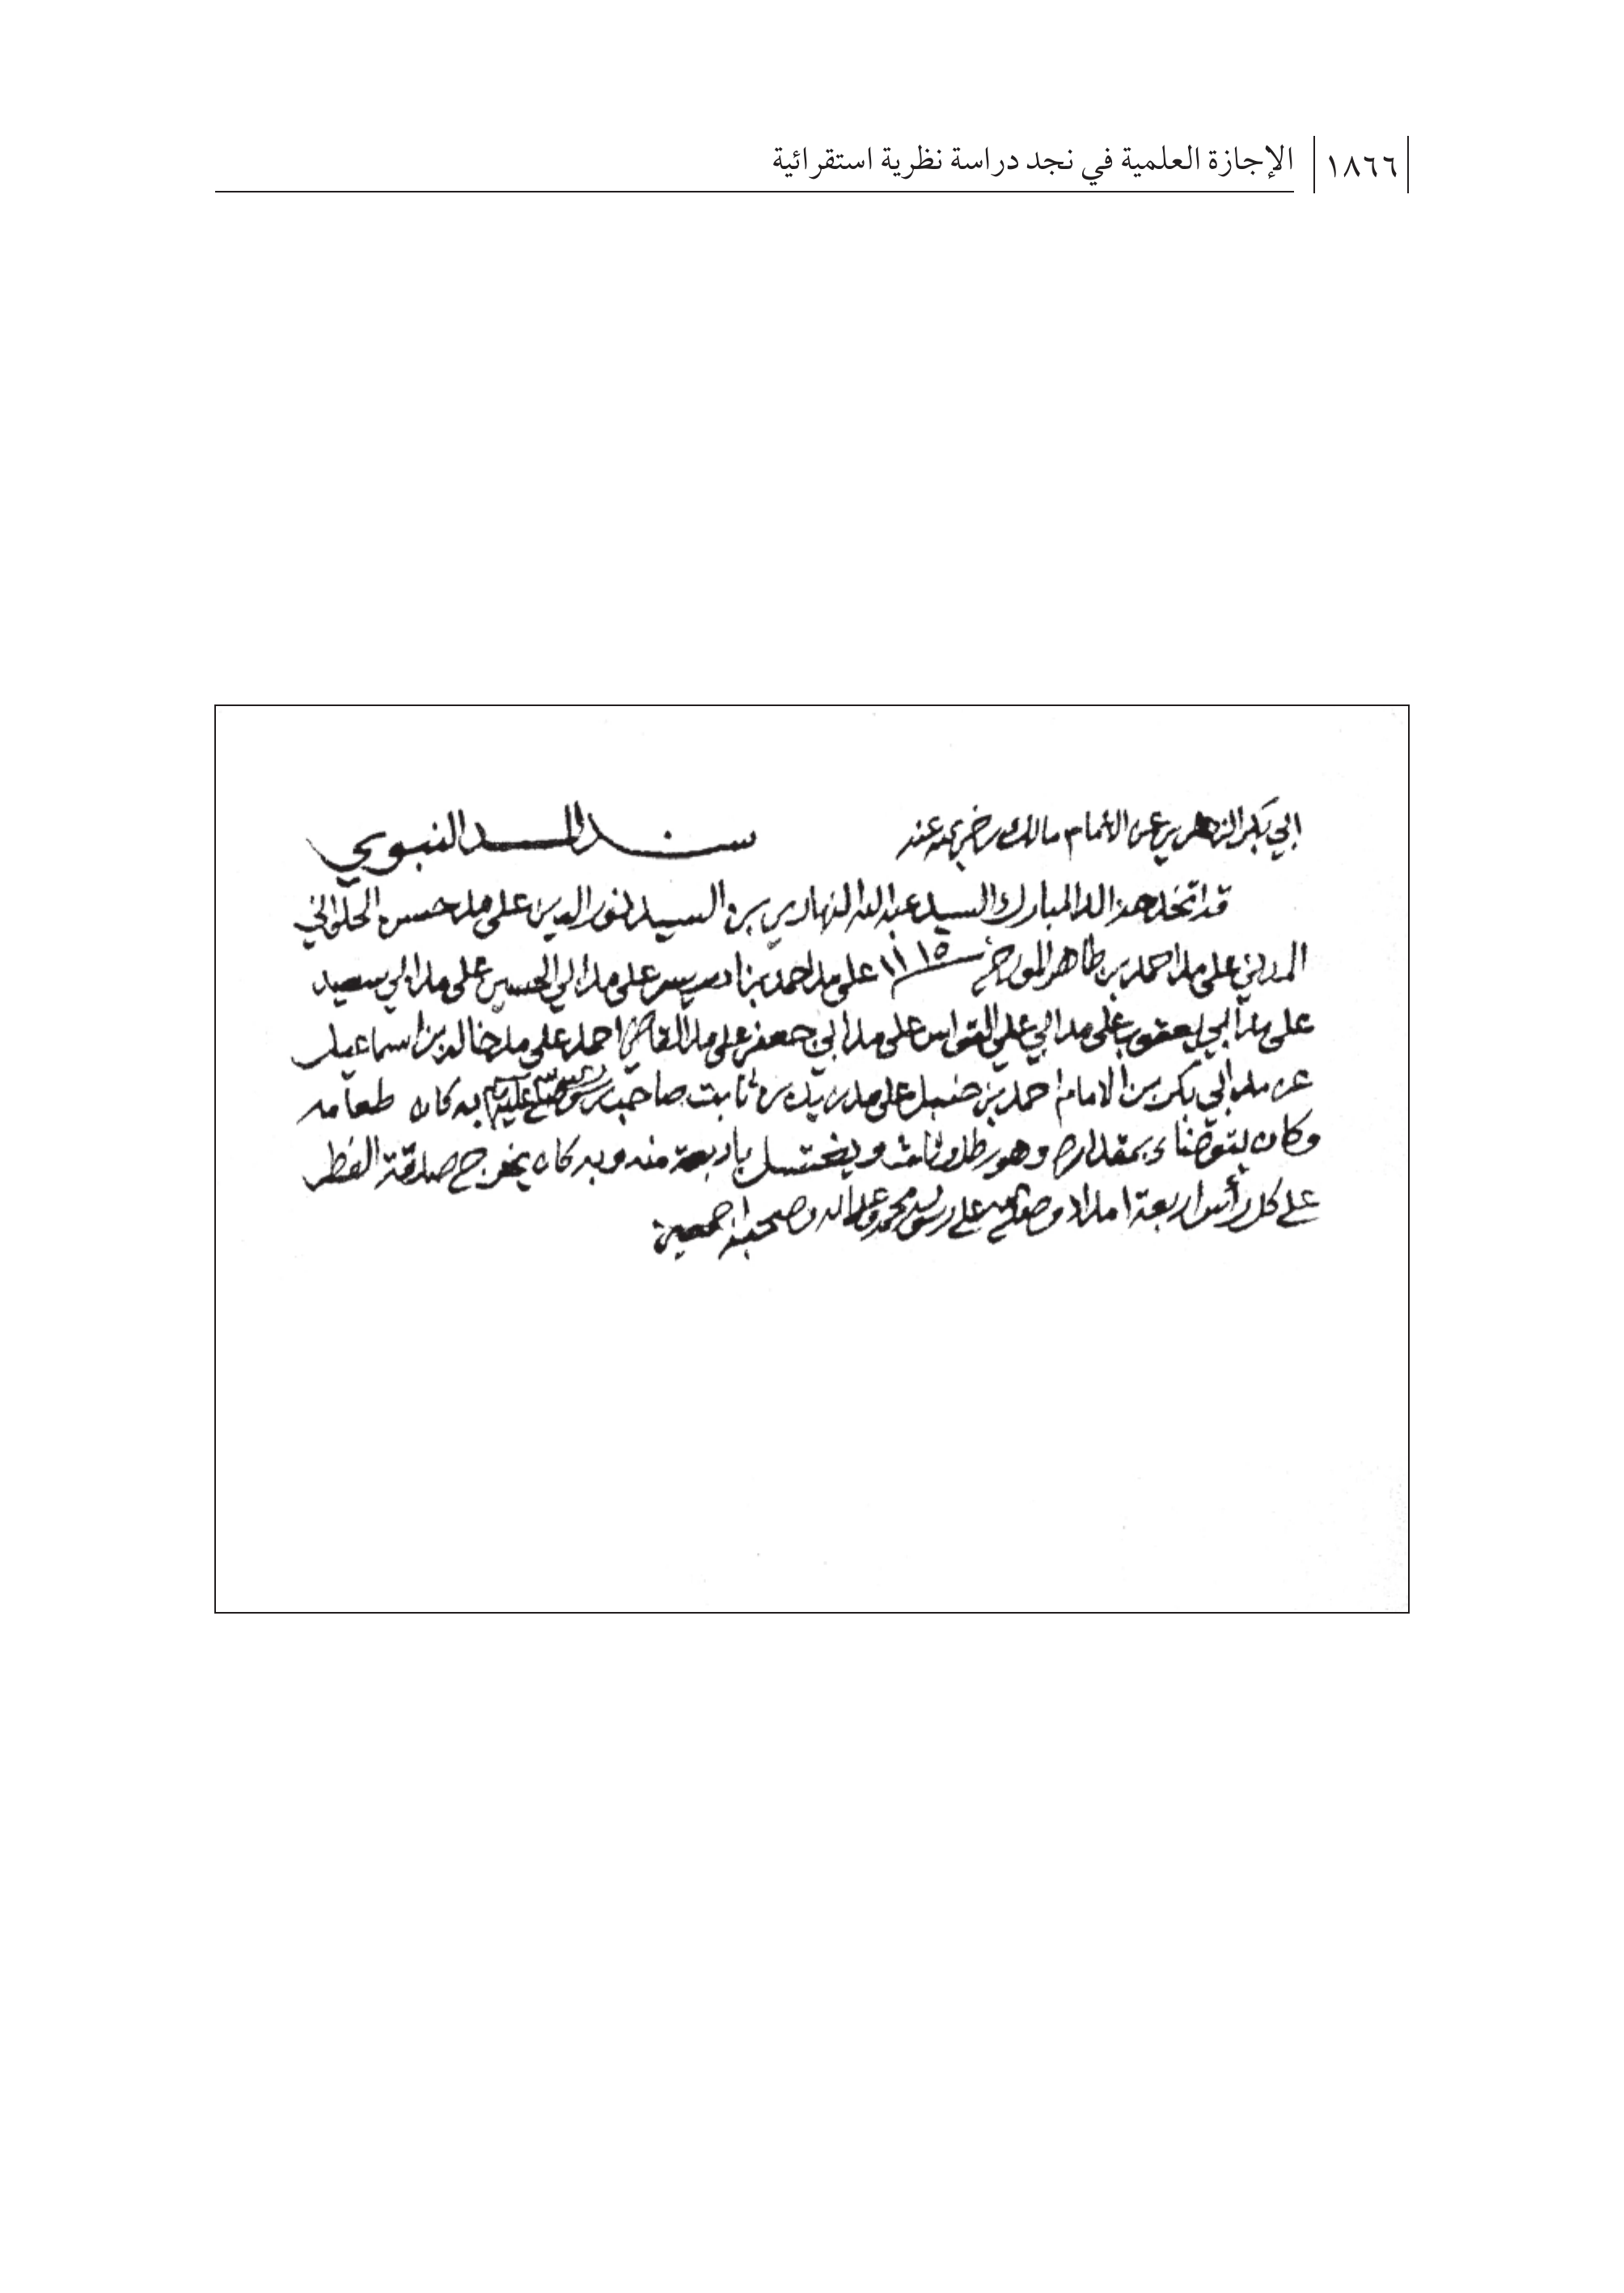 ١٨٦٦ الإجازة العلمية في نجد دراسة نظرية استقرائية
ابي بكر الزهري عن الامام مالك رضي عنه سند المد النبوي
قد اتخذ هذا المد المبارك السيد عبد الله النهاري بن السيد نور الدين على مد حسن الحلواني
المدني على مد احمد بن طاهر المورخ سنة ١١١٥ على مد احمد بن ادريس على مد ابي الحسين على مد ابي سعيد
على مد ابي يعقوب على مد ابي علي القواس على مد ابي جعفر على مد القاضي احمد على مد خالد بن اسماعيل
عن مد ابي بكر بن الامام احمد بن حنبل على مد زيد بن ثابت صاحب رسول الله صلى الله عليه به كان طعامه
وكان يتوضاء بمقداره وهو رطل وثلث ويغتسل باربعة منه وبه كان يخرج صدقة الفطر
على كل رأس اربعة امداد وصلى الله على محمد وعلى اله وصحبه اجمعين